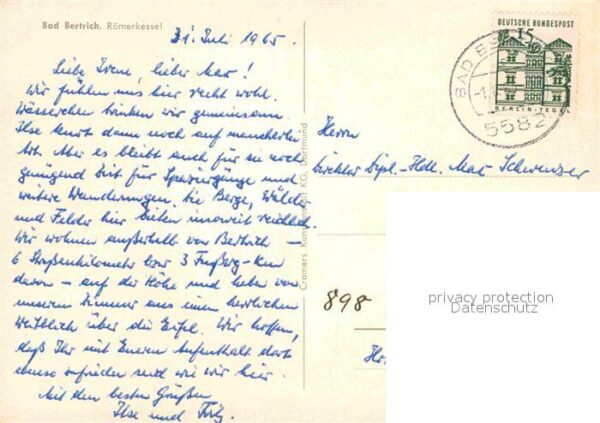 Bad Bertrich. Römerkessel
31. Juli 1965.
Liebe Irene, lieber Max!
Wir fühlen uns hier recht wohl.
Wässerchen trinken wir gemeinsam.
Ilse kurt dann noch auf mancherlei
Art. Aber es bleibt auch für sie noch
genügend Zeit für Spaziergänge und
weitere Wanderungen. Die Berge, Wälder
und Felder hier bieten insoweit reichlich.
Wir wohnen außerhalb von Bertrich –
6 Straßenkilometer bzw 3 Fußweg-km
davon – auf der Höhe und haben von
unserem Zimmer aus einen herrlichen
Weitblick über die Eifel. Wir hoffen,
daß Ihr mit Eurem Aufenthalt dort
ebenso zufrieden seid wie wir hier.
Mit den besten Grüßen
Ilse und Fritz.
Cramers Kunstanstalt KG, Dortmund
DEUTSCHE BUNDESPOST
15
BERLIN-TEGEL
BAD BE
5582
Herrn
Direktor Dipl.-Hdl. Max Schwenzer
898
privacy protection
Datenschutz